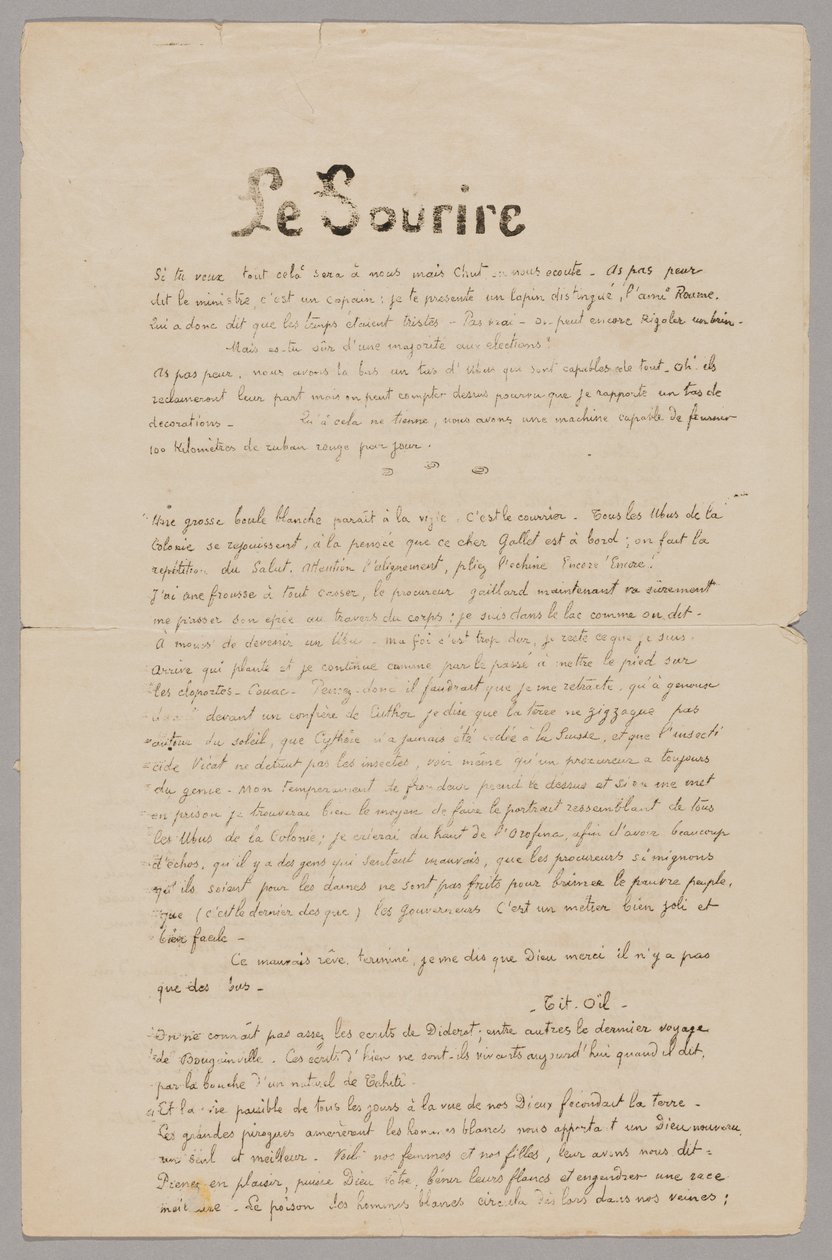 Le Sourire
Si tu veux tout cela sera à nous mais Chut on nous ecoute _ As pas peur
dit le ministre, c'est un copain: je te presente un lapin distingué, l'ami Roume.
Qui a donc dit que les temps étaient tristes _ Pas vrai _ on peut encore Rigoler un brin _
Mais es-tu sûr d'une majorité aux elections?
As pas peur, nous avons là bas un tas d'Ubus qui sont capables de tout _ Oh! ils
reclameront leur part mais on peut compter dessus pourvu que je rapporte un tas de
decorations _ Qu'à cela ne tienne, nous avons une machine capable de fournir
100 Kilomètres de ruban rouge par jour.
Une grosse boule blanche parait à la vigie. C'est le courrier _ Tous les Ubus de la
Colonie se rejouissent, à la pensée que ce cher Gallet est à bord; on fait la
repétition du Salut. Attention l'alignement, pliez l'echine Encore! Encore!
J'ai une frousse à tout casser, le procureur gaillard maintenant va sûrement
me passer son epée au travers du corps: je suis dans le lac comme on dit _
A moins de devenir un Ubu _ ma foi c'est trop dur, je reste ce que je suis.
Arrive qui plante et je continue comme par le passé à mettre le pied sur
les cloportes _ Couac _ Pensez-donc il faudrait que je me retracte, qu'à genoux
devant un confrère de Luthor je dise que la terre ne zigzague pas
autour du soleil, que Cythère n'a jamais été cedée à la Suisse, et que l'insecti
cide Vicat ne detruit pas les insectes, voir même qu'un procureur a toujours
du genie _ Mon temperament de frondeur prend le dessus et si on me met
en prison je trouverai bien le moyen de faire le portrait ressemblant de tous
les Ubus de la Colonie; je crierai du haut de l'Orofina, afin d'avoir beaucoup
d'echos, qu'il y a des gens qui sentent mauvais, que les procureurs si mignons
qu'ils soient pour les dames ne sont pas faits pour brimer le pauvre peuple,
que (c'est le dernier des que) les Gouverneurs C'est un métier bien joli et
bien facile _
Ce mauvais rêve terminé, je me dis que Dieu merci il n'y a pas
que des Ubus _
_ Tit-Oïl _
On ne connaît pas assez les ecrits de Diderot; entre autres le dernier voyage
de Bougainville. Ces ecrits d'hier ne sont-ils vivants aujourd'hui quand il dit,
par la bouche d'un naturel de Tahiti.
Et la vie paisible de tous les jours à la vue de nos Dieux fecondait la terre _
Les grandes pirogues amenèrent les hommes blancs nous apportant un Dieu nouveau,
un seul et meilleur. Voilà nos femmes et nos filles, leur avons nous dit =
Prenez en plaisir, puisse Dieu Vôtre, bénir leurs flancs et engendrer une race
meilleure _ Le poison des hommes blancs circula dès lors dans nos veines;